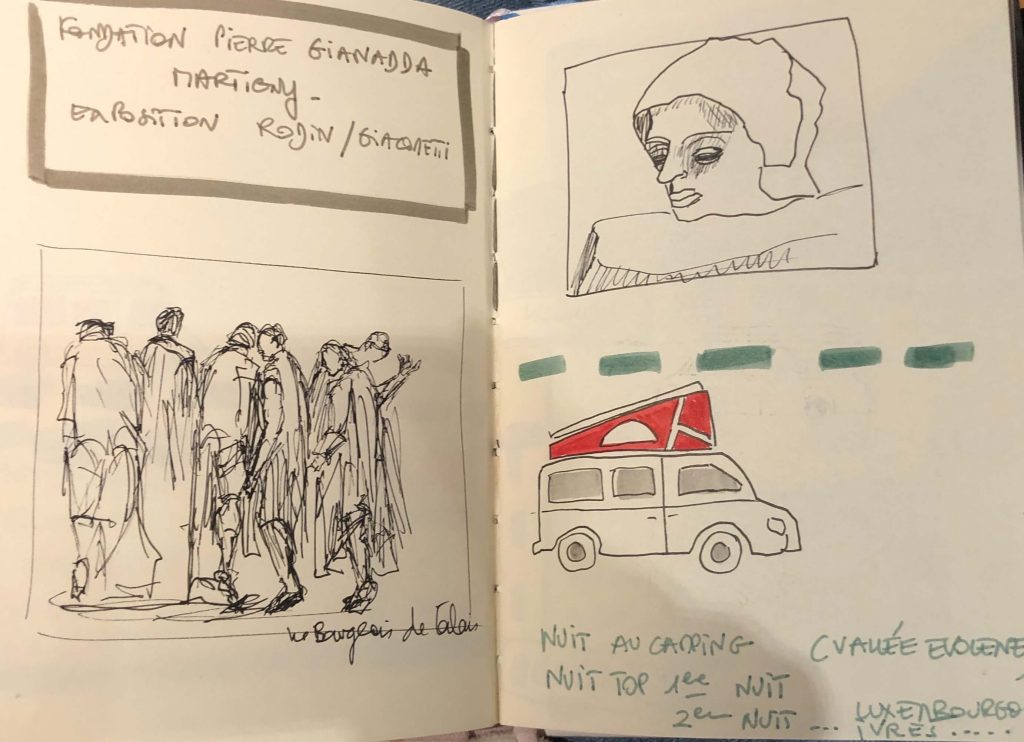 FONDATION PIERRE GIANADDA
MARTIGNY -
EXPOSITION RODIN / GIACOMETTI
Les Bourgeois de Calais
NUIT AU CAMPING (VALLÉE EVOLENE
NUIT TOP 1ere NUIT
2em NUIT ... LUXEMBOURGO
IVRES .....